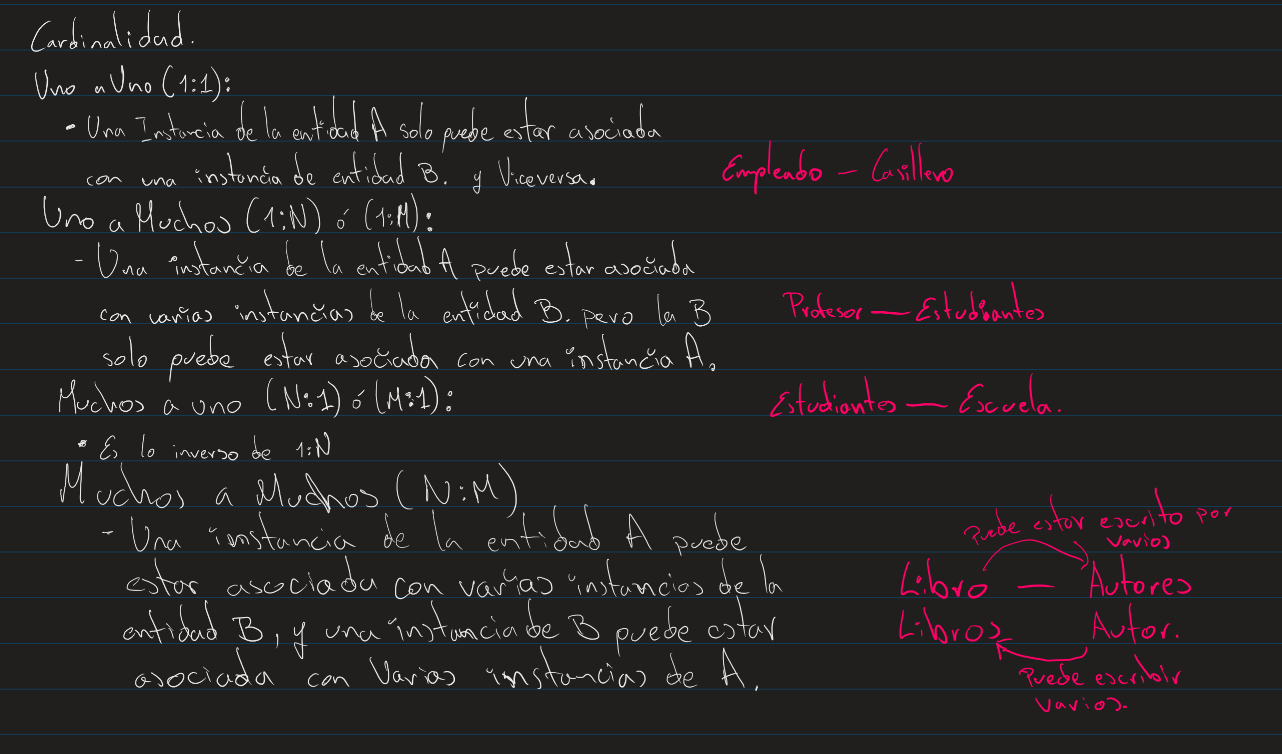 Cardinalidad.
Uno a Uno (1:1):
- Una Instancia de la entidad A solo puede estar asociada
con una instancia de entidad B. y Viceversa.
Empleado - Casillero
Uno a Muchos (1:N) ó (1:M):
- Una instancia de la entidad A puede estar asociada
con varias instancias de la entidad B. pero la B
Profesor - Estudiantes
solo puede estar asociada con una instancia A.
Muchos a uno (N:1) ó (M:1):
Estudiantes - Escuela.
- Es lo inverso de 1:N
Muchos a Muchos (N:M)
- Una instancia de la entidad A puede
estar asociada con varias instancias de la
entidad B, y una instancia de B puede estar
asociada con Varias instancias de A.
Puede estar escrito por
varios
Libro - Autores
Libros Autor.
Puede escribir
varios.